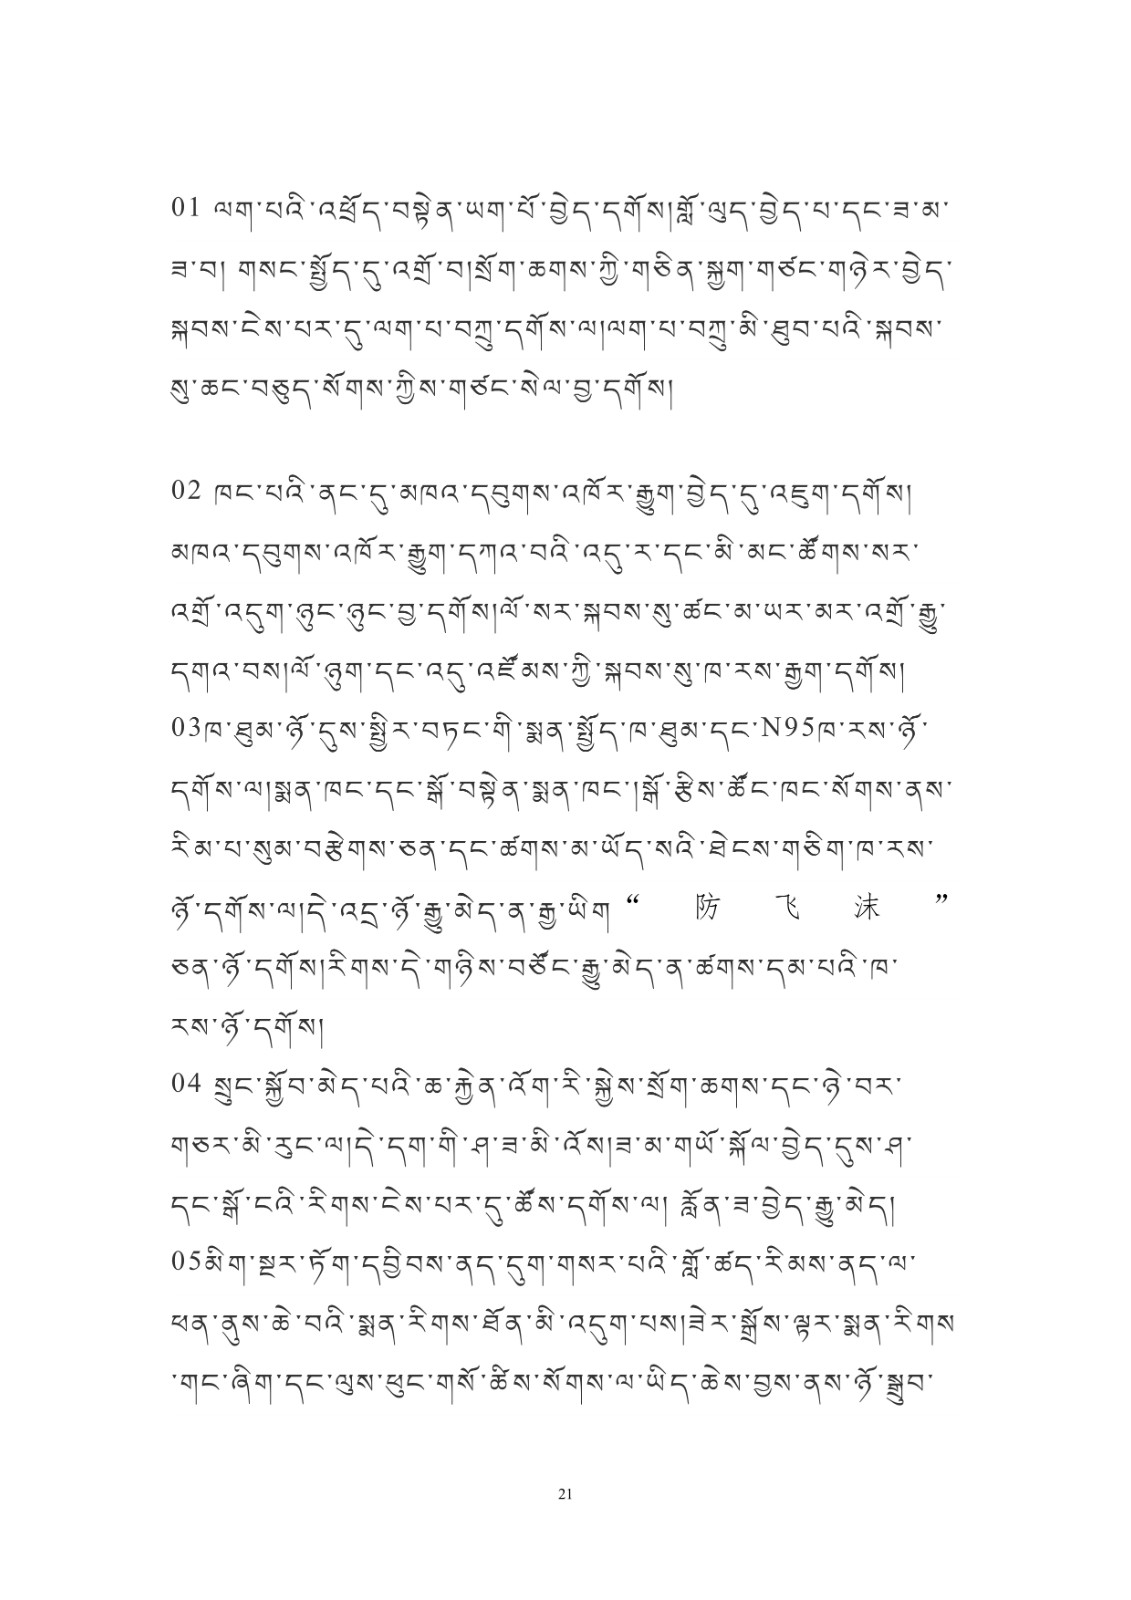 01 ལག་པའི་འཕྲོད་བསྟེན་ཡག་པོ་བྱེད་དགོས།གློ་ལུད་བྱེད་པ་དང་ཟ་མ་
ཟ་བ། གསང་སྤྱོད་དུ་འགྲོ་བ།སྲོག་ཆགས་ཀྱི་གཅིན་སྐྱག་གཙང་གཉེར་བྱེད་
སྐབས་ངེས་པར་དུ་ལག་པ་བཀྲུ་དགོས་ལ།ལག་པ་བཀྲུ་མི་ཐུབ་པའི་སྐབས་
སུ་ཆང་བཅུད་སོགས་ཀྱིས་གཙང་སེལ་བྱ་དགོས།
02 ཁང་པའི་ནང་དུ་མཁའ་དབུགས་འཁོར་རྒྱུག་བྱེད་དུ་འཇུག་དགོས།
མཁའ་དབུགས་འཁོར་རྒྱུག་དཀའ་བའི་འདུ་ར་དང་མི་མང་ཚོགས་སར་
འགྲོ་འདུག་ཉུང་ཉུང་བྱ་དགོས།ལོ་སར་སྐབས་སུ་ཚང་མ་ཡར་མར་འགྲོ་རྒྱུ་
དགའ་བས།ལོ་ཉུག་དང་འདུ་འཛོམས་ཀྱི་སྐབས་སུ་ཁ་རས་རྒྱག་དགོས།
03ཁ་ཐུམ་ཉོ་དུས་སྤྱིར་བཏང་གི་སྨན་སྤྱོད་ཁ་ཐུམ་དང་N95ཁ་རས་ཉོ་
དགོས་ལ།སྨན་ཁང་དང་སྒོ་བསྟེན་སྨན་ཁང་།སྒོ་རྩིས་ཚོང་ཁང་སོགས་ནས་
རིམ་པ་སུམ་བརྩེགས་ཅན་དང་ཚགས་མ་ཡོད་སའི་ཐེངས་གཅིག་ཁ་རས་
ཉོ་དགོས་ལ།དེ་འདྲ་ཉོ་རྒྱུ་མེད་ན་རྒྱ་ཡིག “ 防 飞 沫 ”
ཅན་ཉོ་དགོས།རིགས་དེ་གཉིས་བཙོང་རྒྱུ་མེད་ན་ཚགས་དམ་པའི་ཁ་
རས་ཉོ་དགོས།
04 སྲུང་སྐྱོབ་མེད་པའི་ཆ་རྐྱེན་འོག་རི་སྐྱེས་སྲོག་ཆགས་དང་ཉེ་བར་
གཅར་མི་རུང་ལ།དེ་དག་གི་ཤ་ཟ་མི་འོས།ཟ་མ་གཡོ་སྐོལ་བྱེད་དུས་ཤ་
དང་སྒོ་ངའི་རིགས་ངེས་པར་དུ་ཚོས་དགོས་ལ། རློན་ཟ་བྱེད་རྒྱུ་མེད།
05མིག་སྔར་ཏོག་དབྱིབས་ནད་དུག་གསར་པའི་གློ་ཚད་རིམས་ནད་ལ་
ཕན་ནུས་ཆེ་བའི་སྨན་རིགས་ཐོན་མི་འདུག་པས།ཟེར་སྒྲོས་ལྟར་སྨན་རིགས
་གང་ཞིག་དང་ལུས་ཕུང་གསོ་ཚོས་སོགས་ལ་ཡིད་ཆེས་བྱས་ནས་ཉོ་སྒྲུབ་
21